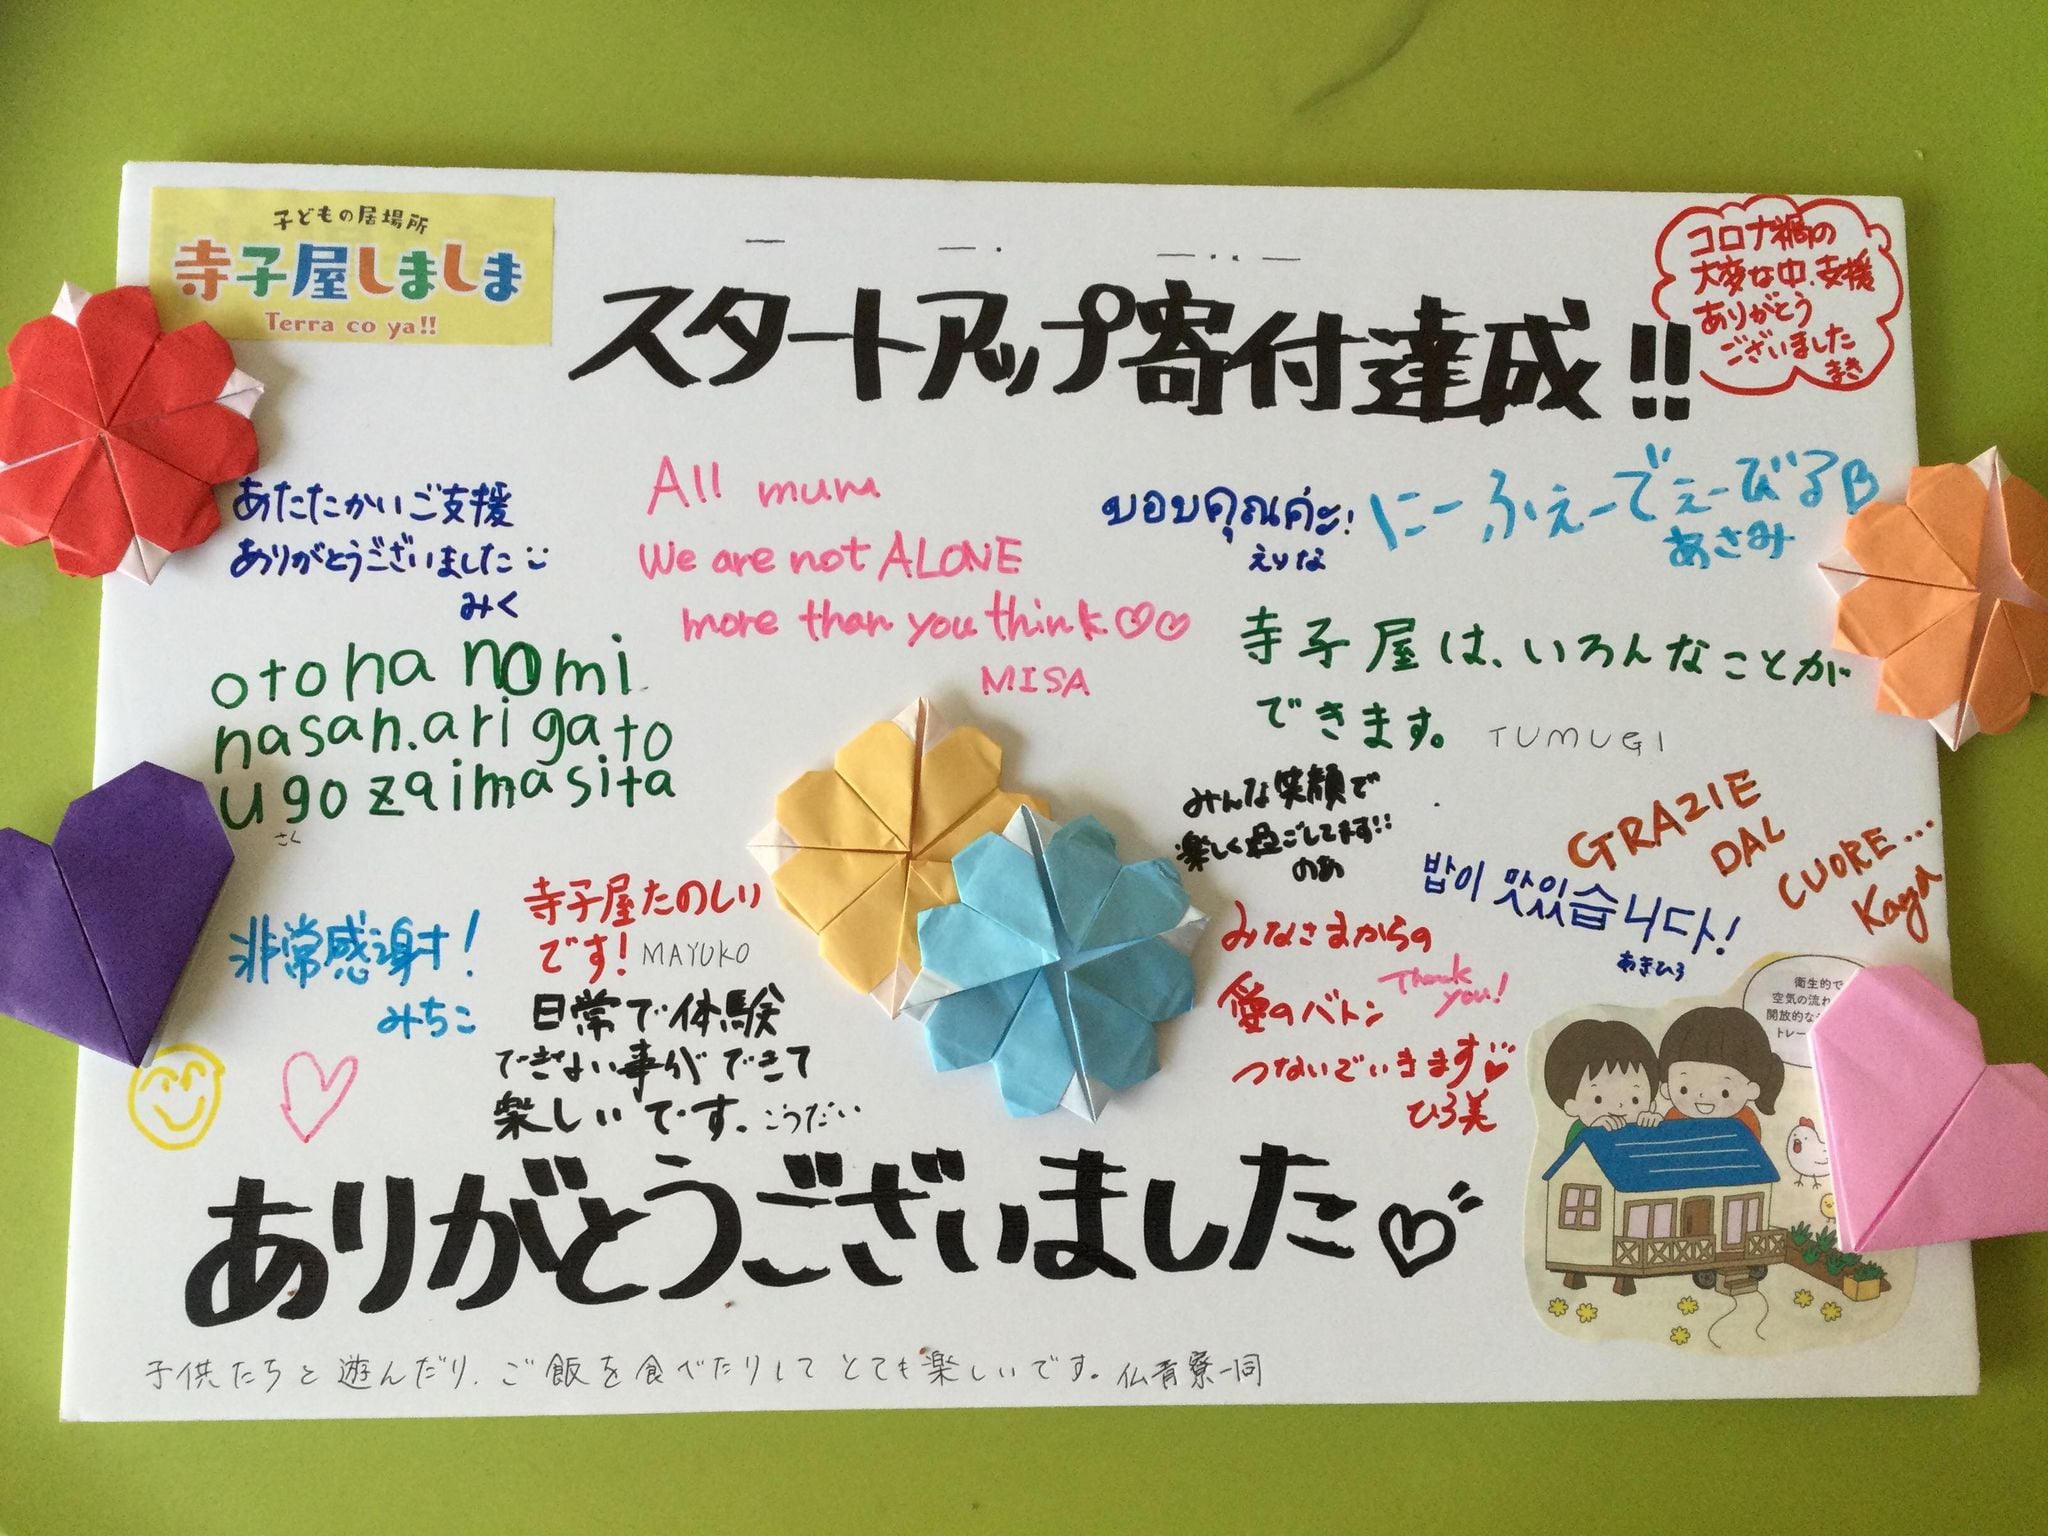 子どもの居場所
寺子屋しましま
Terra co ya!!
スタートアップ寄付達成!!
コロナ禍の
大変な中、支援
ありがとう
ございました
まき
あたたかいご支援
ありがとうございました
みく
All mum
We are not ALONE
more than you think♡♡
MISA
ขอบคุณค่ะ!
えりな
にーふぇーでぇーびるB
あさみ
otona nomi
nasan.arigato
ugozaimasita
さく
寺子屋は、いろんなことが
できます。 TUMUGI
みんな笑顔で
楽しく過ごしてます!!
のあ
GRAZIE
DAL
CUORE...
Kaya
밥이 맛있습니다!
あきひろ
非常感謝!
みちこ
寺子屋たのしい
です! MAYUKO
日常で体験
できない事ができて
楽しいです。こうだい
みなさまからの
愛のバトン
Thank
you!
つないでいきます♥
ひろ美
衛生的で
空気の流れ
開放的な
トレー
ありがとうございました♡
子供たちと遊んだり、ご飯を食べたりしてとても楽しいです。仏青寮一同